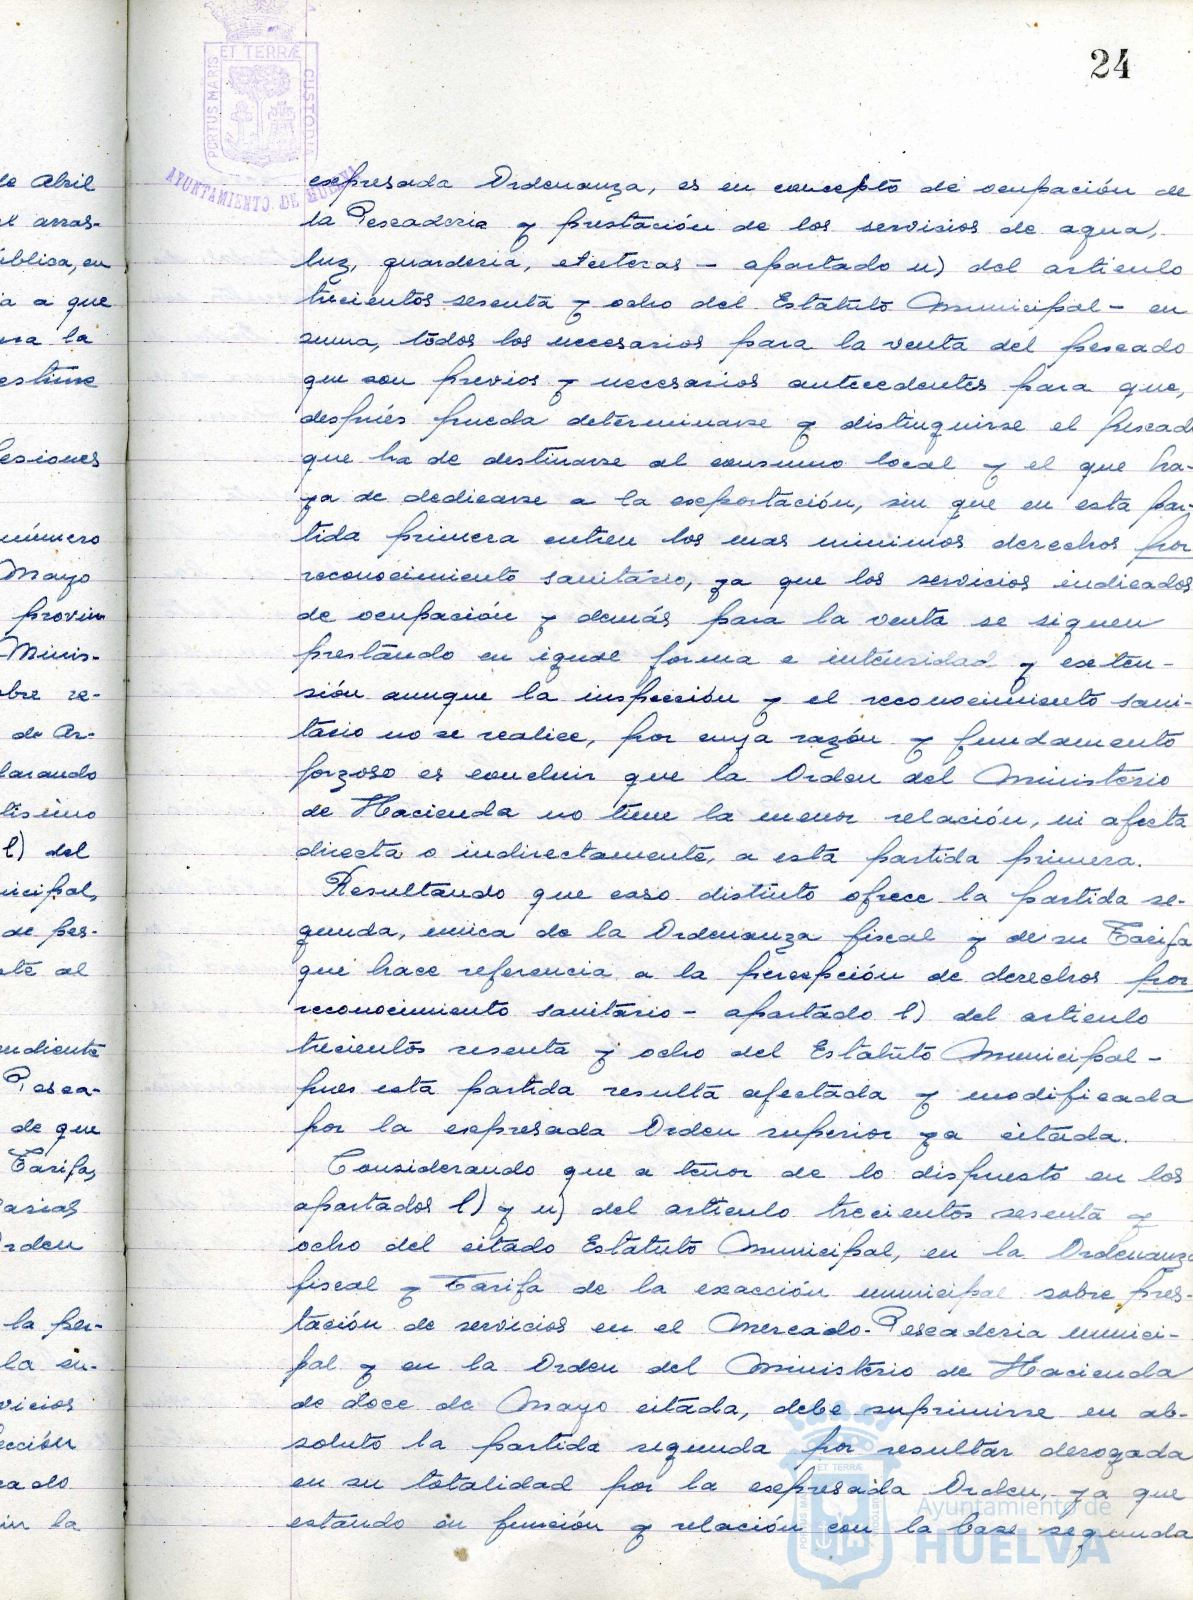 24
PORTUS MARIS ET TERRÆ CUSTODIA
AYUNTAMIENTO DE HUELVA
de Abril
arras-
ública, en
a que
la
estime
sesiones
número
Mayo
provin
Minis-
re-
de Ar-
larando
l) del
nicipal,
de pes-
al
ndiente
Pesca-
de que
Tarifa,
Orden
la per-
la en-
vicios
ección
cado
la
expresada Ordenanza, es en concepto de ocupación de
la Pescaderia y prestación de los servicios de agua,
luz, guarderia, etcteras - apartado u) del articulo
trecientos sesenta y ocho del Estatuto Municipal - en
suma, todos los necesarios para la venta del pescado
que son previos y necesarios antecedentes para que,
después pueda determinarse y distinguirse el pescado
que ha de destinarse al consumo local y el que ha-
ya de dedicarse a la exportación, sin que en esta par-
tida primera entren los mas minimos derechos por
reconocimiento sanitario, ya que los servicios indicados
de ocupación y demás para la venta se siguen
prestando en igual forma e intensidad y exten-
sión aunque la inspección y el reconocimiento sani-
tario no se realice, por cuya razón y fundamento
forzoso es concluir que la Orden del Ministerio
de Hacienda no tiene la menor relación, ni afecta
directa o indirectamente, a esta partida primera.
Resultando que caso distinto ofrece la partida se-
gunda, unica de la Ordenanza fiscal y de su Tarifa
que hace referencia a la percepción de derechos por
reconocimiento sanitario - apartado l) del articulo
trecientos sesenta y ocho del Estatuto Municipal -
pues esta partida resulta afectada y modificada
por la expresada Orden superior ya citada.
Considerando que a tenor de lo dispuesto en los
apartados l) y u) del articulo trecientos sesenta y
ocho del citado Estatuto Municipal, en la Ordenanza
fiscal y Tarifa de la exacción municipal sobre pres-
tación de servicios en el Mercado-Pescaderia munici-
pal y en la Orden del Ministerio de Hacienda
de doce de Mayo citada, debe suprimirse en ab-
soluto la partida segunda por resultar derogada
en su totalidad por la expresada Orden, ya que
estando en función y relación con la base segunda
ET TERRÆ
Ayuntamiento de
HUELVA